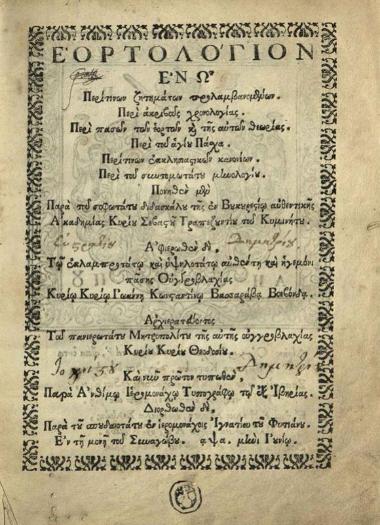 ἙΟΡΤΟΛΌΓΙΟΝ
ἘΝ ᾯ
Περί τινων ζητημάτων προλαμβανομένων.
Περὶ ἀκριβοῦς χρονολογίας.
Περὶ πασῶν τῶν ἑορτῶν καὶ τῆς αὐτῶν θεωρίας.
Περὶ τοῦ ἁγίου Πάσχα.
Περί τινων ἐκκλησιαστικῶν κανονίων.
Περὶ τοῦ συντομωτάτου μηνολογίου.
Πονηθὲν μὲν
Παρὰ τοῦ σοφωτάτου διδασκάλου τῆς ἐν Βουκουρεστίῳ αὐθεντικῆς
Ἀκαδημίας Κυρίου Σεβαστοῦ Τραπεζουντίου τοῦ Κυμινήτου.
Ἀφιερωθὲν δὲ.
Τῷ ἐκλαμπροτάτῳ καὶ ὑψηλοτάτῳ αὐθέντῃ καὶ ἡγεμόνι
πάσης Οὐγγροβλαχίας
Κυρίῳ Κυρίῳ Ἰωάννῃ Κωνσταντίνῳ Βασσαράβᾳ Βοεβόνδᾳ.
Ἀρχιερατεύοντος
Τοῦ πανιερωτάτου Μητροπολίτου τῆς αὐτῆς οὐγγροβλαχίας
Κυρίου Κυρίου Θεοδοσίου.
Καὶ νῦν πρῶτον τυπωθὲν,
Παρὰ Ἀνθίμου Ἱερομονάχου Τυπογράφου τοῦ ἐξ Ἰβηρίας.
Διορθωθὲν δὲ.
Παρὰ τοῦ σπουδαιοτάτου ἐν ἱερομονάχοις Ἰγνατίου τοῦ Φυτιάνου.
Ἐν τῇ μονῇ τοῦ Συναγώβου. αψα. μηνὶ Ἰουνίῳ.